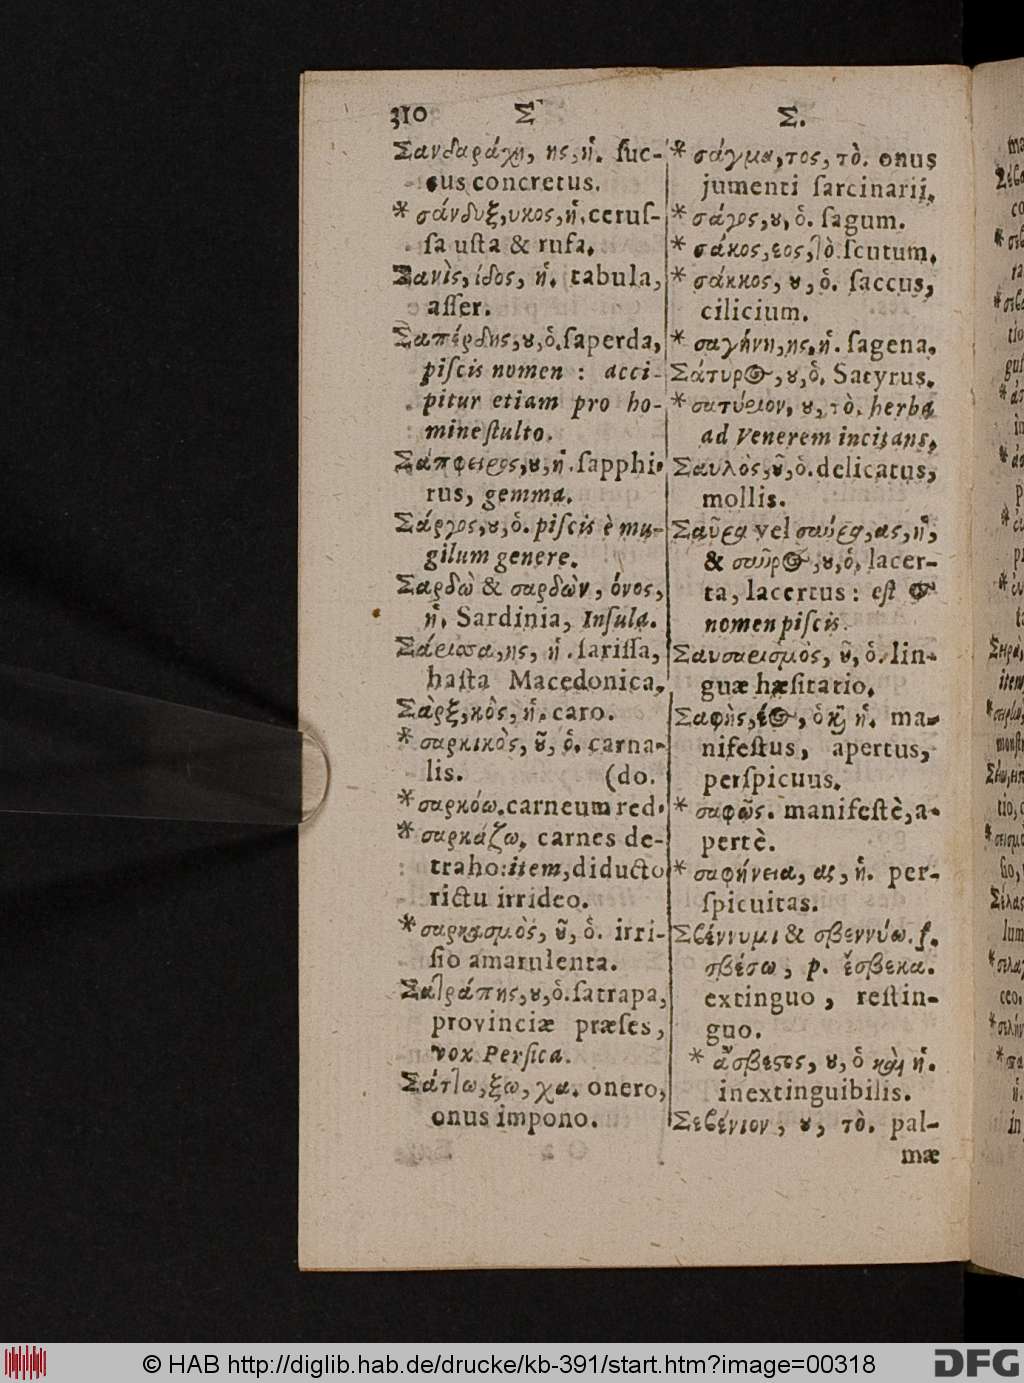 310 Σ Σ.
Σανδαράχη, ης, ἡ. ſuc-
cus concretus.
* σάνδυξ, υκος, ἡ. ceruſ-
ſa uſta & rufa.
Σανὶς, ίδος, ἡ. tabula,
aſſer.
Σαπέρδης, ȣ, ὁ. ſaperda,
piſcis nomen : acci-
pitur etiam pro ho-
mine ſtulto.
Σάπφειρος, ȣ, ἡ. ſapphi-
rus, gemma.
Σάργος, ȣ, ὁ. piſcis è mu-
gilum genere.
Σαρδὼ & σαρδὼν, όνος,
ἡ. Sardinia, Inſula.
Σάρισσα, ης, ἡ. ſariſſa,
haſta Macedonica.
Σὰρξ, κὸς, ἡ. caro.
* σαρκικὸς, ȣ͂, ὁ. carna-
lis. (do.
* σαρκόω. carneum red-
* σαρκάζω, carnes de-
traho: item, diducto
rictu irrideo.
* σαρκασμὸς, ȣ͂, ὁ. irri-
ſio amarulenta.
Σατράπης, ȣ, ὁ. ſatrapa,
provinciæ præſes,
vox Perſica.
Σάττω, ξω, χα. onero,
onus impono.
* σάγμα, τος, τὸ. onus
jumenti ſarcinarii.
* σάγος, ȣ, ὁ. ſagum.
* σάκος, εος, τὸ ſcutum.
* σάκκος, ȣ, ὁ. ſaccus,
cilicium.
* σαγήνη, ης, ἡ. ſagena.
Σάτυρος, ȣ, ὁ. Satyrus.
* σατύριον, ȣ, τὸ. herba
ad Venerem incitans.
Σαυλὸς, ȣ͂, ὁ. delicatus,
mollis.
Σαῦρα vel σαύρα, ας, ἡ,
& σαῦρος, ȣ, ὁ, lacer-
ta, lacertus : eſt &
nomen piſcis.
Σαυσαρισμὸς, ȣ͂, ὁ. lin-
guæ hæſitatio.
Σαφὴς, έος, ὁ καὶ ἡ. ma-
nifeſtus, apertus,
perſpicuus.
* σαφῶς. manifeſtè, a-
pertè.
* σαφήνεια, ας, ἡ. per-
ſpicuitas.
Σβέννυμι & σβεννύω. f.
σβέσω, p. ἔσβεκα.
extinguo, reſtin-
guo.
* ἄσβεστος, ȣ, ὁ καὶ ἡ.
inextinguibilis.
Σεβένιον, ȣ, τὸ. pal-
mæ
© HAB http://diglib.hab.de/drucke/kb-391/start.htm?image=00318
DFG